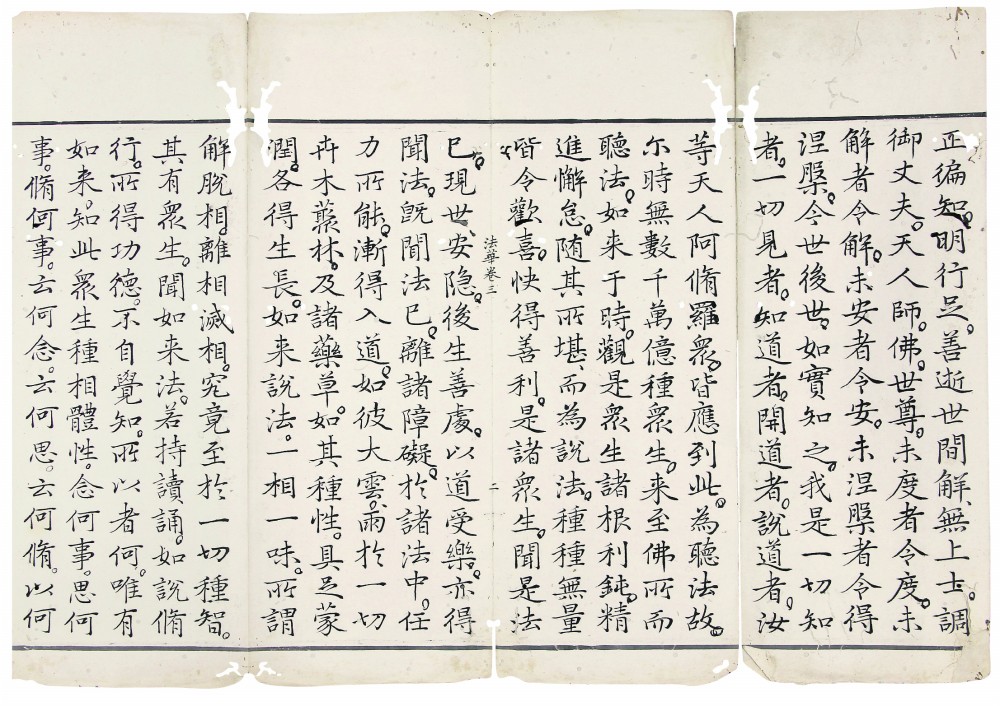 正徧知。明行足。善逝世間解。無上士。調
御丈夫。天人師。佛。世尊。未度者令度。未
解者令解。未安者令安。未涅槃者令得
涅槃。今世後世。如實知之。我是一切知
者。一切見者。知道者。開道者。說道者。汝
等天人阿脩羅衆。皆應到此。為聽法故。
尒時無數千萬億種衆生。来至佛所而
聽法。如来于時。觀是衆生諸根利鈍。精
進懈怠。随其所堪。而為說法。種種無量
皆令歡喜。快得善利。是諸衆生。聞是法
法華卷三 二
已。現世安隱。後生善處。以道受樂。亦得
聞法。既聞法已。離諸障礙。於諸法中。任
力所能。漸得入道。如彼大雲。雨於一切
卉木叢林。及諸藥草。如其種性。具足蒙
潤。各得生長。如来說法。一相一味。所謂
解脫相。離相滅相。究竟至於一切種智。
其有衆生。聞如来法。若持讀誦。如說脩
行。所得功德。不自覺知。所以者何。唯有
如来。知此衆生種相體性。念何事。思何
事。脩何事。云何念。云何思。云何脩。以何